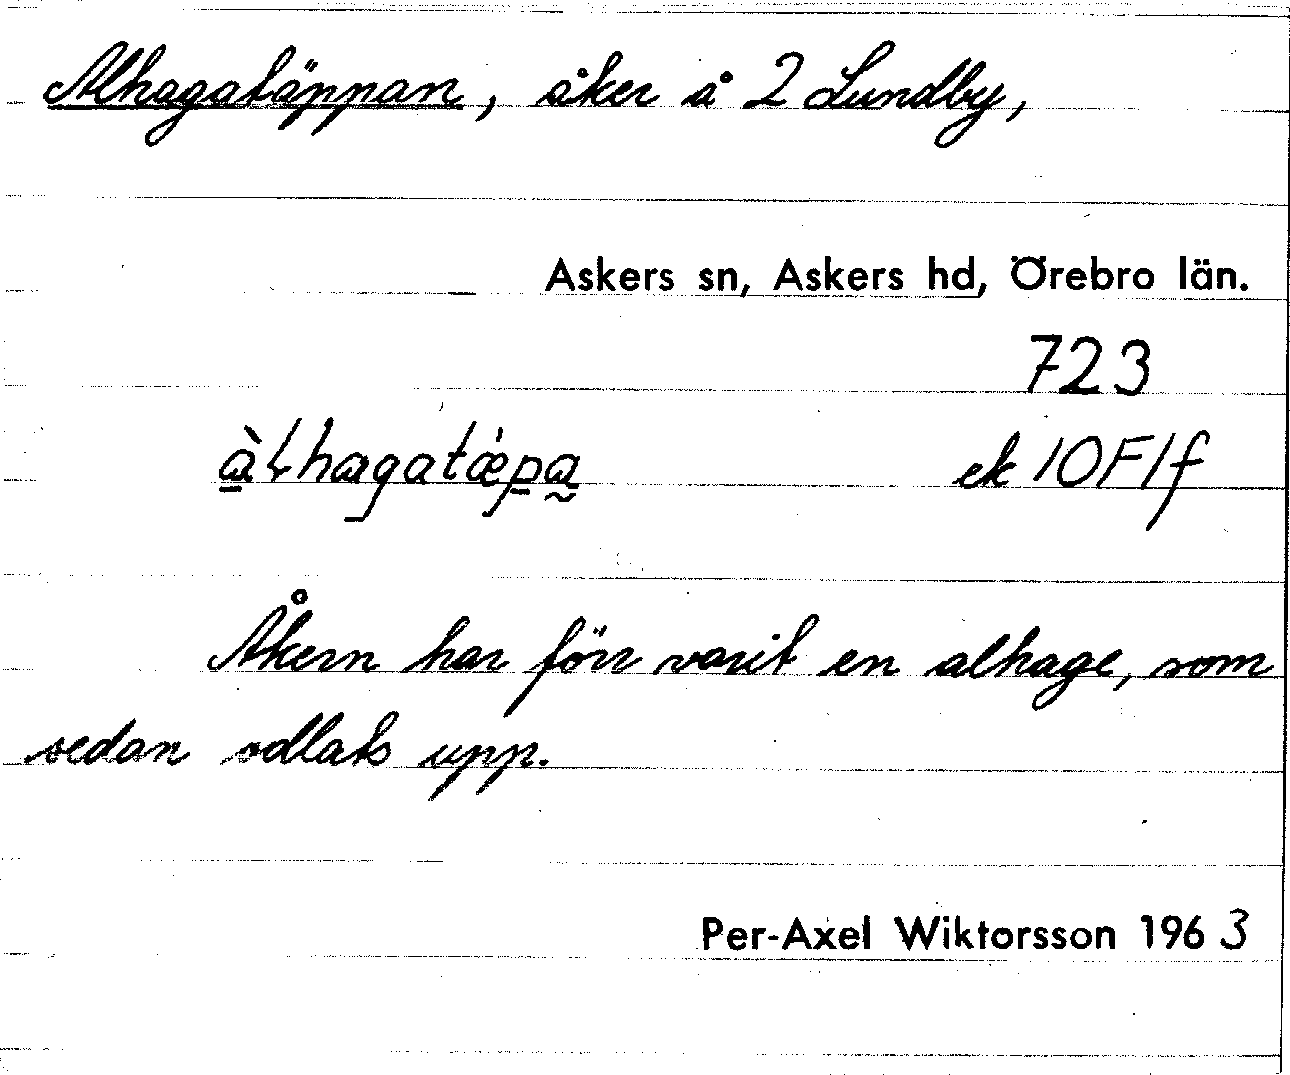 Alhagatäppan, åker å 2 Lundby,
Askers sn, Askers hd, Örebro län.
723
ek 10F1f
Åkern har förr varit en alhage, som
sedan odlats upp.
Per-Axel Wiktorsson 1963